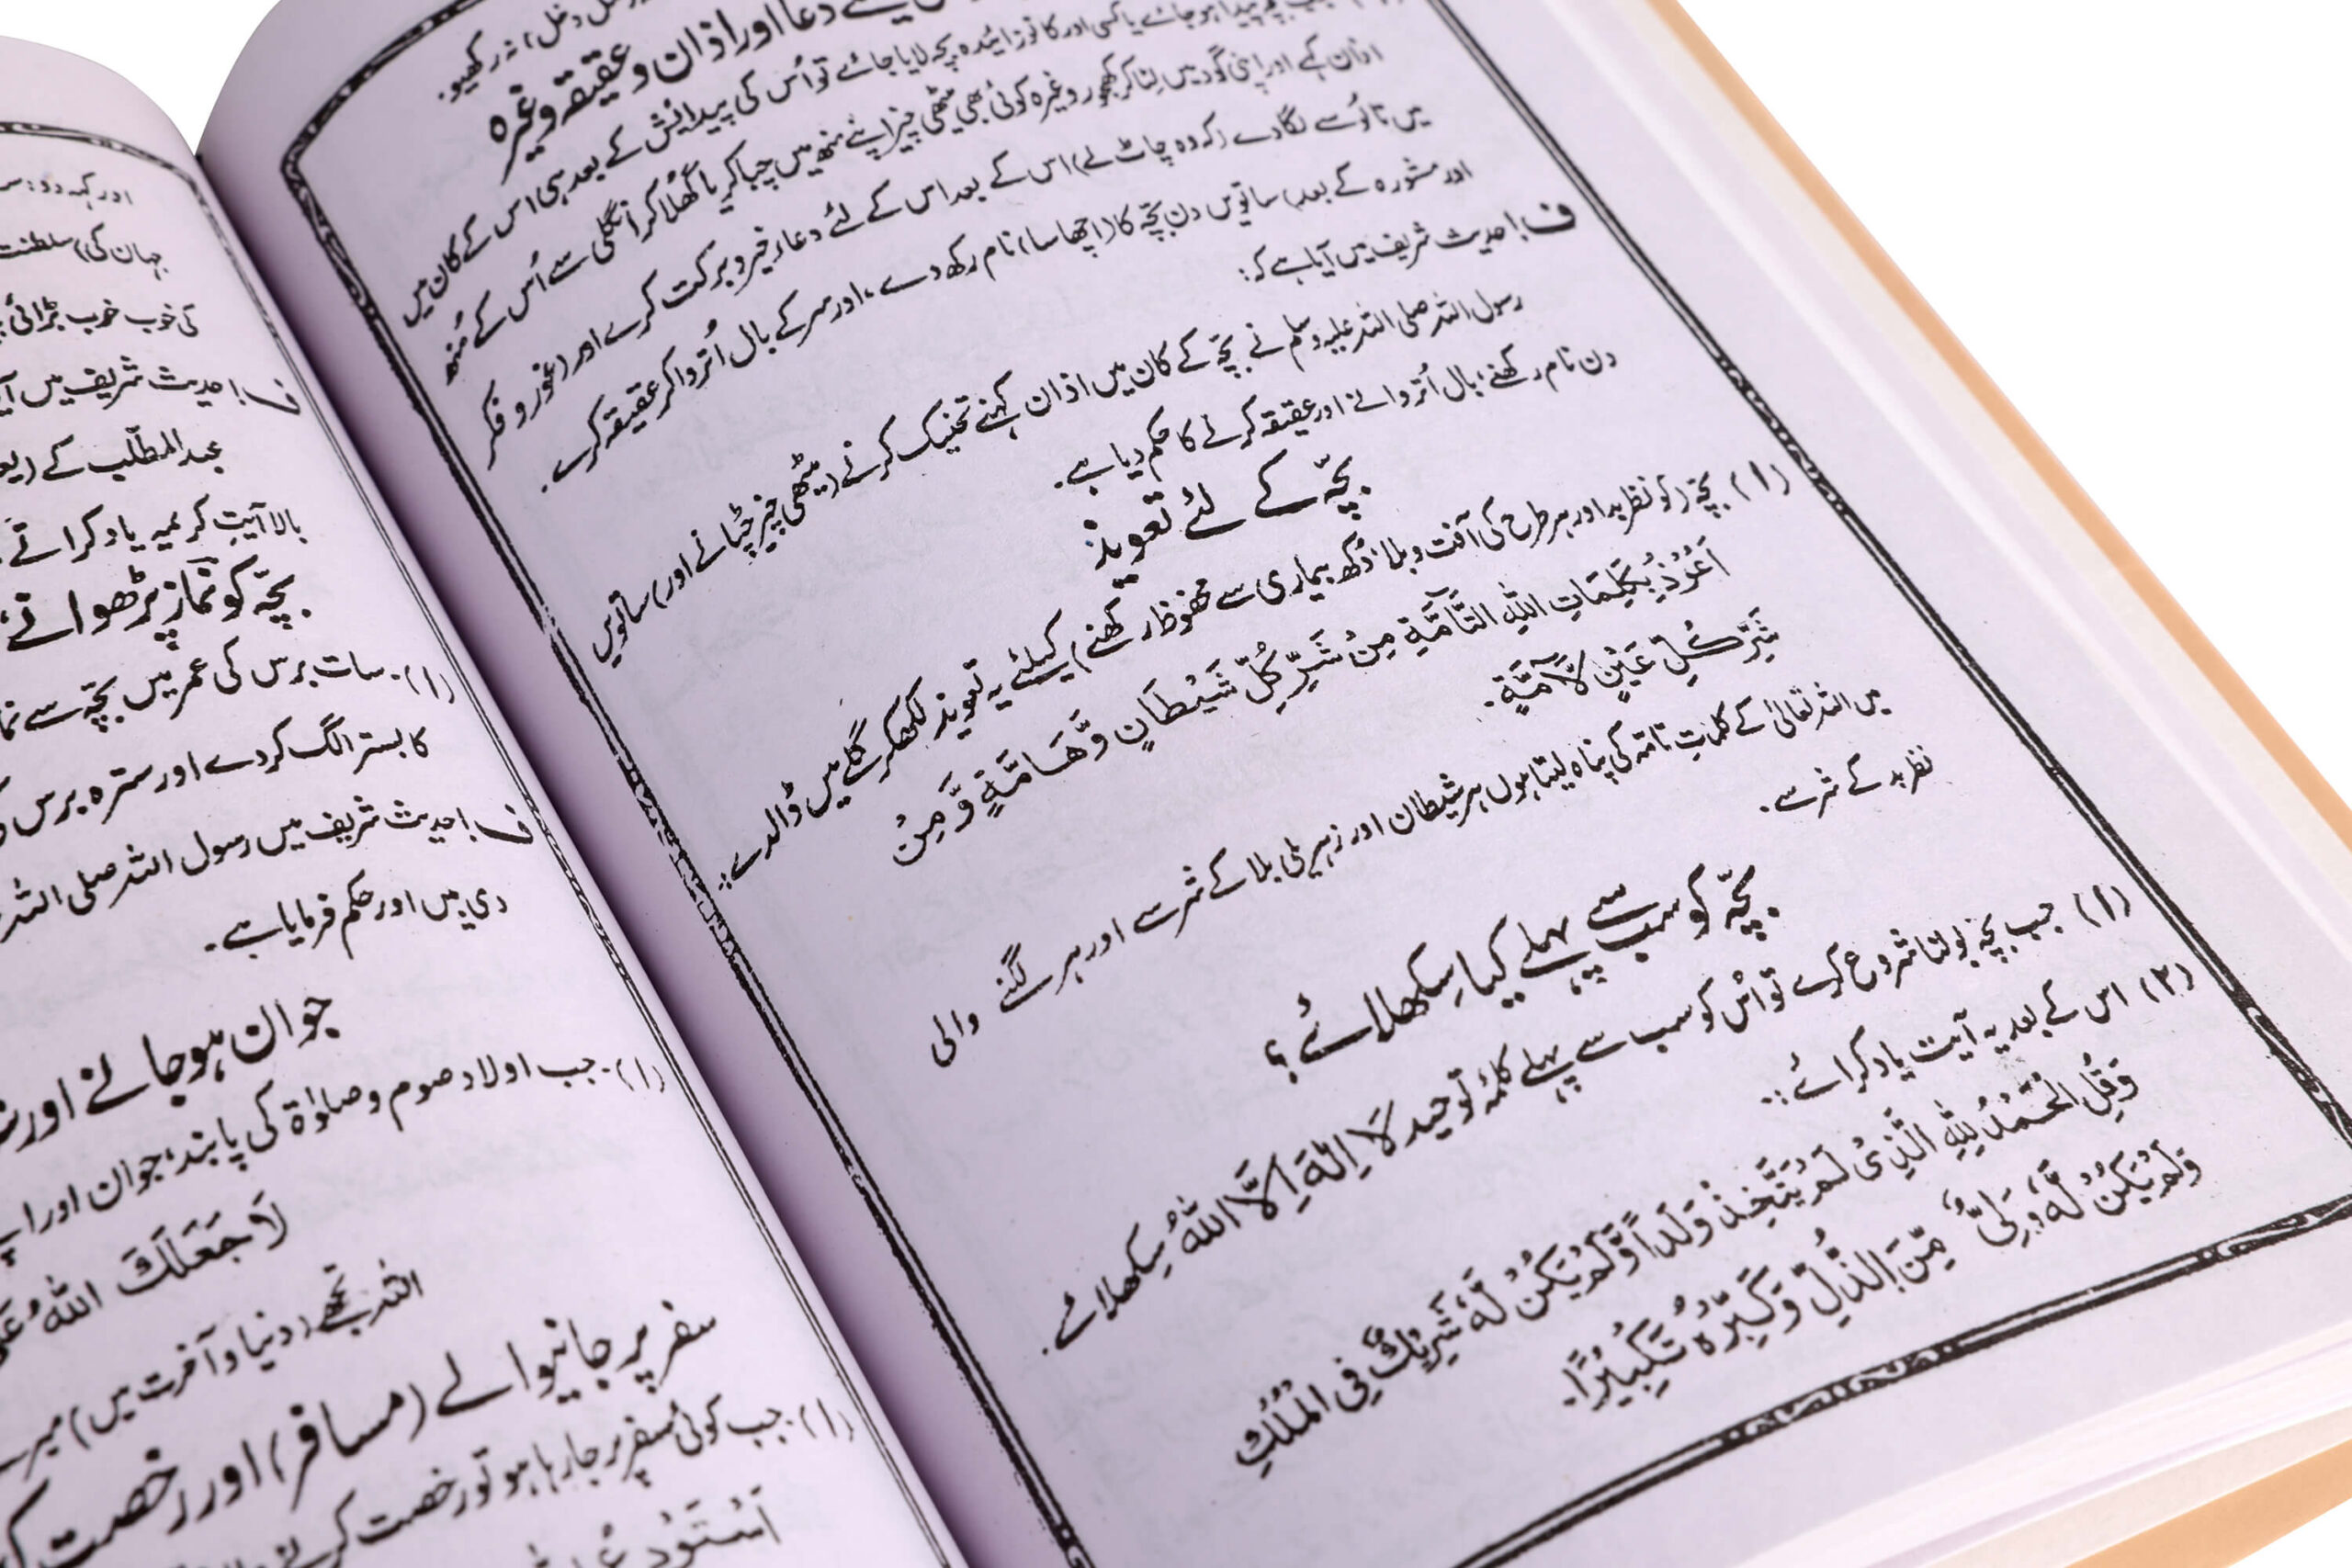 دخل، نہ رکھیو.
دعا اور اذان و عقیقہ وغیرہ
پیدا ہو جائے یا کسی اور کا نوزائیدہ بچہ لایا جائے تو اُس کی پیدائش کے بعد ہی اس کے کان میں
اذان کہے اور اپنی گود میں لِٹا کر کھجور وغیرہ کوئی بھی میٹھی چیز اپنے منھ میں چبا کر یا گھُلا کر اُنگلی سے اُس کے مُنھ
میں تالُو سے لگا دے (کہ وہ چاٹ لے) اس کے بعد اس کے لئے دعاءِ خیر و برکت کرے اور (غور و فکر
اور مشورہ کے بعد) ساتویں دن بچّہ کا (اچھا سا) نام رکھ دے، اور سر کے بال اُتروا کر عقیقہ کرے.
ف! حدیث شریف میں آیا ہے کہ:
رسول اللہ صلی اللہ علیہ وسلم نے بچّہ کے کان میں اذان کہنے تحنیک کرنے (میٹھی چیز چٹانے اور) ساتویں
دن نام رکھنے، بال اُتروانے اور عقیقہ کرنے کا حکم دیا ہے.
بچّہ کے لئے تعویذ
(۱) بچّہ (کو نظر بد اور ہر طرح کی آفت و بلا، دُکھ بیماری سے محفوظ رکھنے) کیلئے یہ تعویذ لکھکر گلے میں ڈالدے:
اَعُوْذُ بِكَلِمَاتِ اللّٰهِ التَّآمَّةِ مِنْ شَرِّ كُلِّ شَيْطَانٍ وَّهَامَّةٍ وَّمِنْ
شَرِّ كُلِّ عَيْنٍ لَآمَّةٍ.
میں اللہ تعالیٰ کے کلماتِ تامّہ کی پناہ لیتا ہوں ہر شیطان اور زہریلی بلا کے شر سے اور ہر لگنے والی
نظر بد کے شر سے.
بچّہ کو سب سے پہلے کیا سِکھلائے؟
(۱) جب بچّہ بولنا شروع کرے تو اُس کو سب سے پہلے کلمۂ توحید لَا اِلٰهَ اِلَّا اللّٰهُ سِکھلائے.
(۲) اس کے بعد یہ آیت یاد کرائے:
وَقُلِ الْحَمْدُ لِلّٰهِ الَّذِیْ لَمْ يَتَّخِذْ وَلَدًا وَّلَمْ يَكُنْ لَّهٗ شَرِيْكٌ فِی الْمُلْكِ
وَلَمْ يَكُنْ لَّهٗ وَلِیٌّ مِّنَ الذُّلِّ وَكَبِّرْهُ تَكْبِيْرًا.
اور کہہ دو: س
جہان کی) سلطنت
کی خوب خوب بڑائی
ف! حدیث شریف میں آیا
عبدالمطّلب کے (یع
بالا آیتِ کریمہ یاد کراتے
بچّہ کو نماز پڑھوانے،
(۱). سات برس کی عمر میں بچّہ سے نما
کا بستر الگ کردے اور سترہ برس
ف! حدیث شریف میں رسول اللہ صلی اللہ
دی ہیں اور حکم فرمایا ہے.
جوان ہوجانے اور
(۱). جب اولاد صوم و صلوٰۃ کی پابند، جوان اور
لَا جَعَلَكَ اللّٰهُ
اللہ تجھے (دنیا و آخرت میں) میرے
سفر پر جانیوالے (مسافر) اور رخصت
(۱). جب کوئی سفر پر جا رہا ہو تو رخصت کرنے